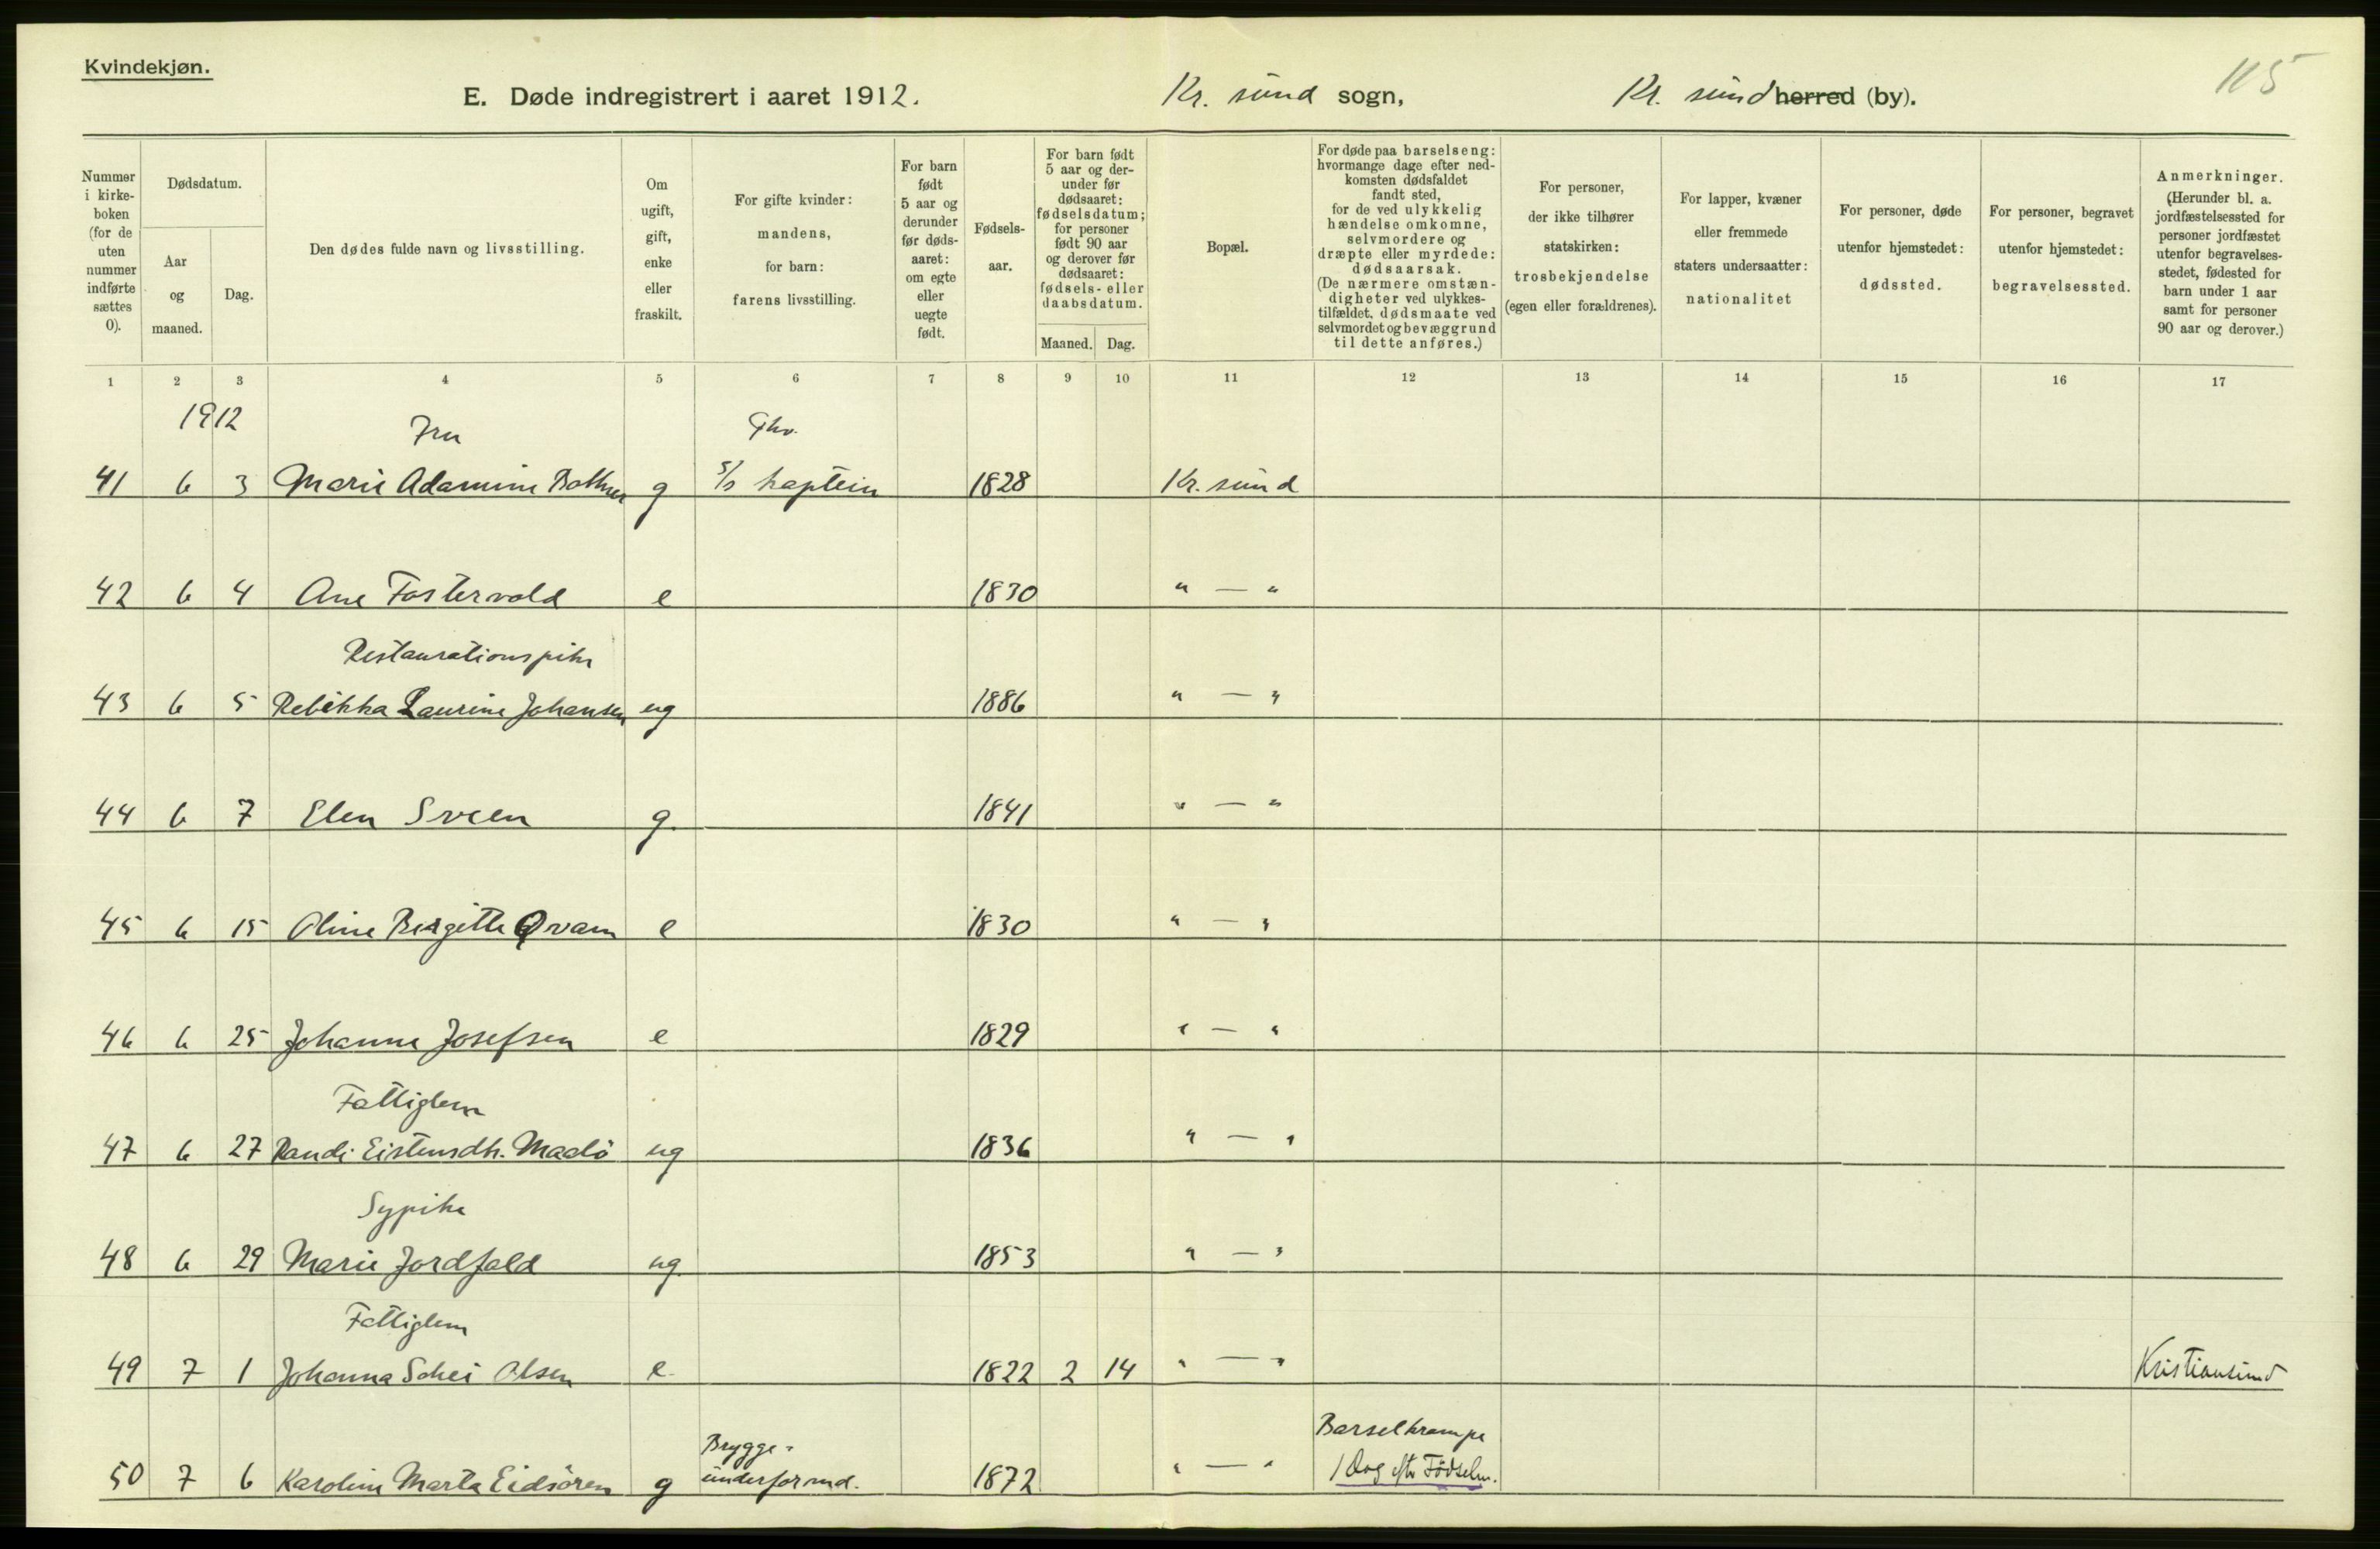 Kvindekjøn.
115
E. Døde indregistrert i aaret 1912. Kr. sund sogn, Kr. sund herred (by).
Nummer i kirke-boken (for de uten nummer indførte sættes 0).
Dødsdatum.
Aar og maaned.
Dag.
Den dødes fulde navn og livsstilling.
Om ugift, gift, enke eller fraskilt.
For gifte kvinder: mandens, for barn: farens livsstilling.
For barn født 5 aar og derunder før døds-aaret: om egte eller uegte født.
Fødsels-aar.
For barn født 5 aar og der-under før dødsaaret: fødselsdatum; for personer født 90 aar og derover før dødsaaret: fødsels- eller daabsdatum.
Maaned. Dag.
Bopæl.
For døde paa barselseng: hvormange dage efter ned-komsten dødsfaldet fandt sted, for de ved ulykkelig hændelse omkomne, selvmordere og dræpte eller myrdede: dødsaarsak. (De nærmere omstæn-digheter ved ulykkes-tilfældet, dødsmaate ved selvmordet og bevæggrund til dette anføres.)
For personer, der ikke tilhører statskirken: trosbekjendelse (egen eller forældrenes).
For lapper, kvæner eller fremmede staters undersaatter: nationalitet
For personer, døde utenfor hjemstedet: dødssted.
For personer, begravet utenfor hjemstedet: begravelsessted.
Anmerkninger. (Herunder bl. a. jordfæstelsessted for personer jordfæstet utenfor begravelses-stedet, fødested for barn under 1 aar samt for personer 90 aar og derover.)
1 2 3 4 5 6 7 8 9 10 11 12 13 14 15 16 17
1912 Fru
41 6 3 Marie Adamine g S/s kaptein 1828 Kr. sund
42 6 4 Ane Fostervold e 1830 " — "
Restaurationspike
43 6 5 Rebekka Laurine Johansen ug 1886 " — "
44 6 7 Elen Sveen g. 1841 " — "
45 6 15 Oline Bergitte Qvam e 1830 " — "
46 6 25 Johanna Josefsen e 1829 " — "
Fattiglem
47 6 27 Randi Eistensdtr. Madsö ug 1836 " — "
Sypike
48 6 29 Marie Jordfald ug. 1853 " — "
Fattiglem
49 7 1 Johanna Schei Olsen e. 1822 2 14 " — " Kristiansund
Brygge- Barselkrampe
50 7 6 Karoline Marta Eidsören g underformd. 1872 " — " 1 Dag eftr Fødseln.